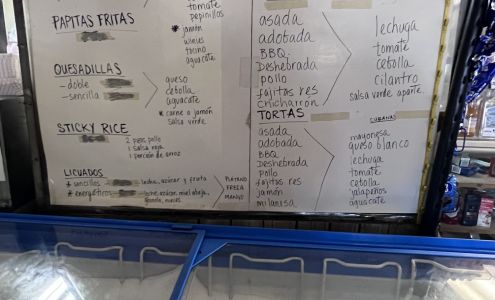 tomate
pepinillos
PAPITAS FRITAS
* jamón
winies
tocino
aguacate
QUESADILLAS
- doble
- sencilla
queso
cebolla
aguacate
* carne o jamón
salsa verde
STICKY RICE
2 pzas pollo
1 salsa roja
1 porción de arroz
LICUADOS
* sencillos
leche, azúcar y fruta
* energéticos
leche, azúcar, miel abeja,
granola, nueces
PLATANO
FRESA
MANGO
asada
adobada
BBQ
Deshebrada
pollo
fajitas res
chicharron
lechuga
tomate
cebolla
cilantro
salsa verde aparte.
TORTAS
CUBANAS
asada
adobada
BBQ
Deshebrada
Pollo
fajitas res
jamón
milanesa
mayonesa
queso blanco
lechuga
tomate
cebolla
jalapeños
aguacate